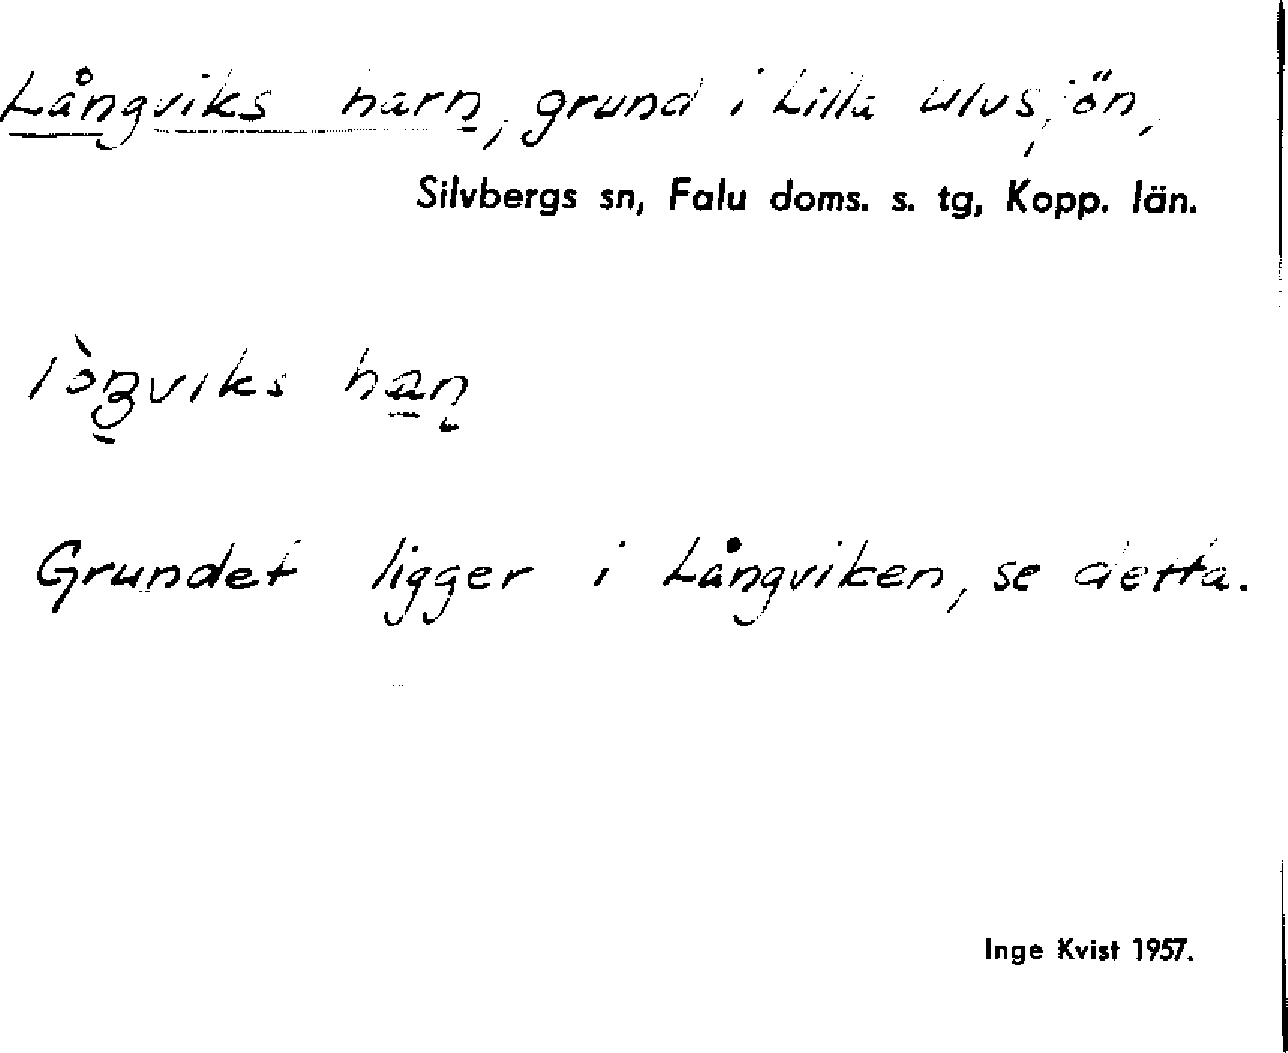 Långviks harn, grund i Lilla Ulvsjön,
Silvbergs sn, Falu doms. s. tg, Kopp. län.
lòŋviks han
Grundet ligger i Långviken, se detta.
Inge Kvist 1957.